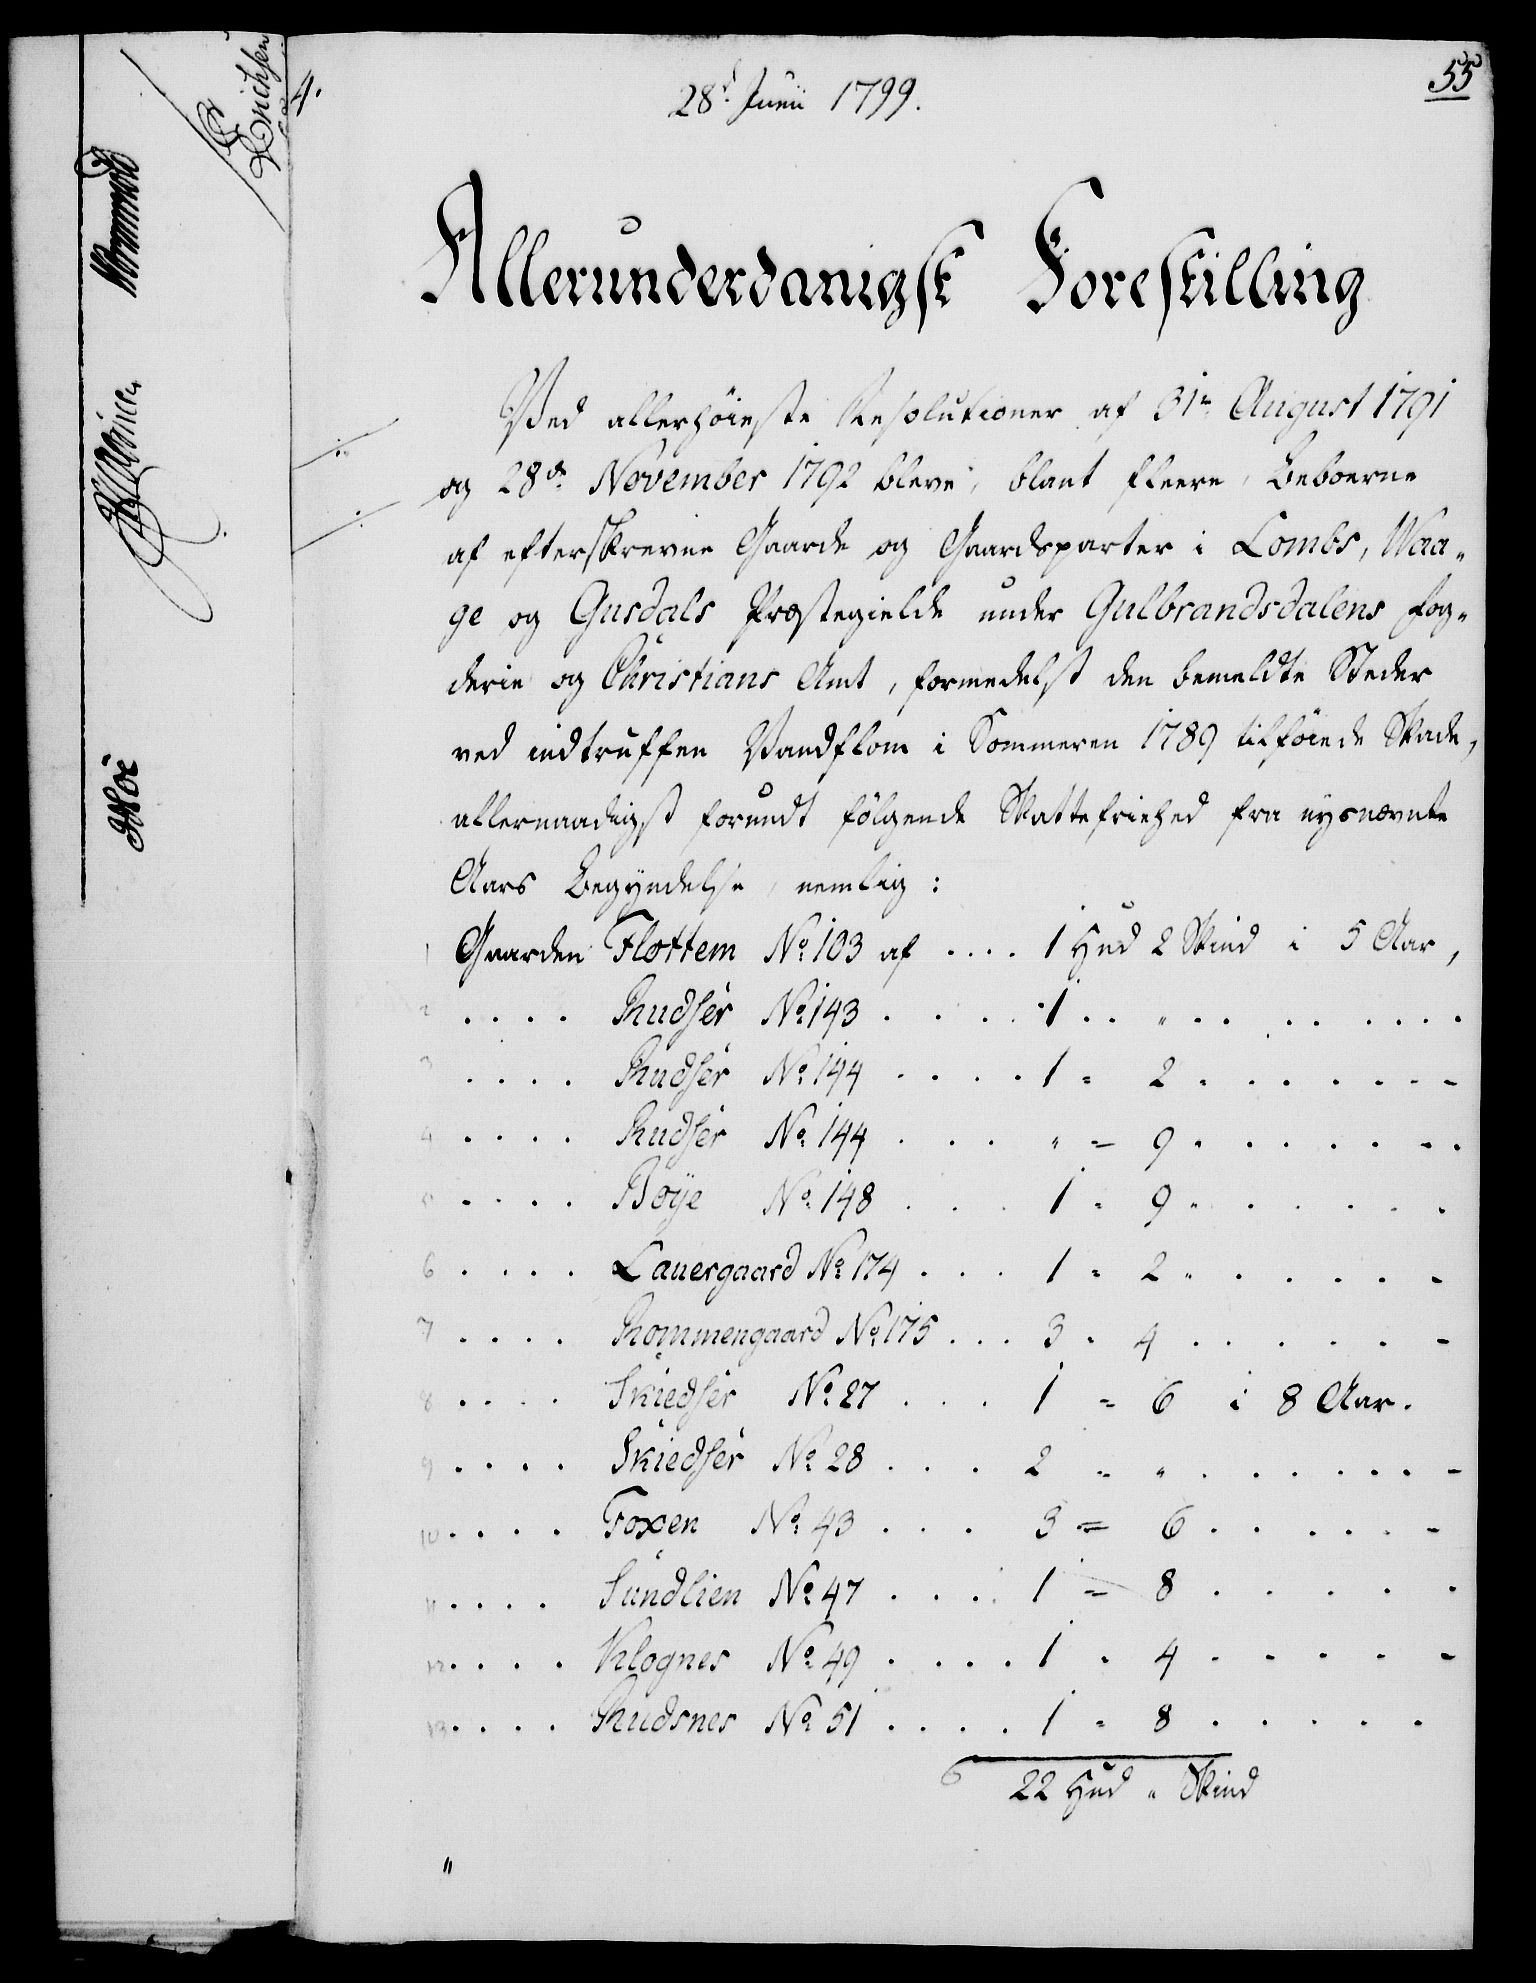 55
4.
28d Junii 1799.
Allerunderdanigst Forestilling
Ved allerhöieste Resolutioner af 31te August 1791
og 28de November 1792 bleve, blant fleere, Beboerne
af efterskrevne Gaarde og Gaardsparter i Lombs, Waa„
ge og Gusdals Præstegielde under Gulbrandsdalens Fog„
derie og Christians Amt, formedelst den bemeldte Steder
ved indtruffen Vandflom i Sommeren 1789 tilföiede Skade,
allernaadigst forundt fölgende Skattefriehed fra nysnævnte
Aars Begyndelse, nemlig:
1 Gaarden Flottem No 103 af .... 1 Hud 2 Skind i 5 Aar,
2 .... Rudsér No 143 .... 1 .. „ .. .. ....
3 .... Rudsér No 144 .... 1 = 2 .......
4 .... Rudsér No 144 ... „ = 9 .......
5 .... Böye No 148 ... 1 = 9 ......
6 .... Lauergaard No 174 ... 1 = 2 ......
7 .... Rommengaard No 175 ... 3 = 4 ......
8 .... Skiedsér No 27 ... 1 = 6 i 8 Aar.
9 .... Skiedsér No 28 ... 2 = „ .......
10 .... Foxen No 43 ... 3 = 6 ......
11 .... Sundlien No 47 .... 1 = 8 .....
12 .... Klognes No 49 .... 1 = 4 .....
13 .... Rudsnes No 51 .... 1 = 8 .....
22 Hud „ Skind
„
Wormskiold
Hoë
Erichsen